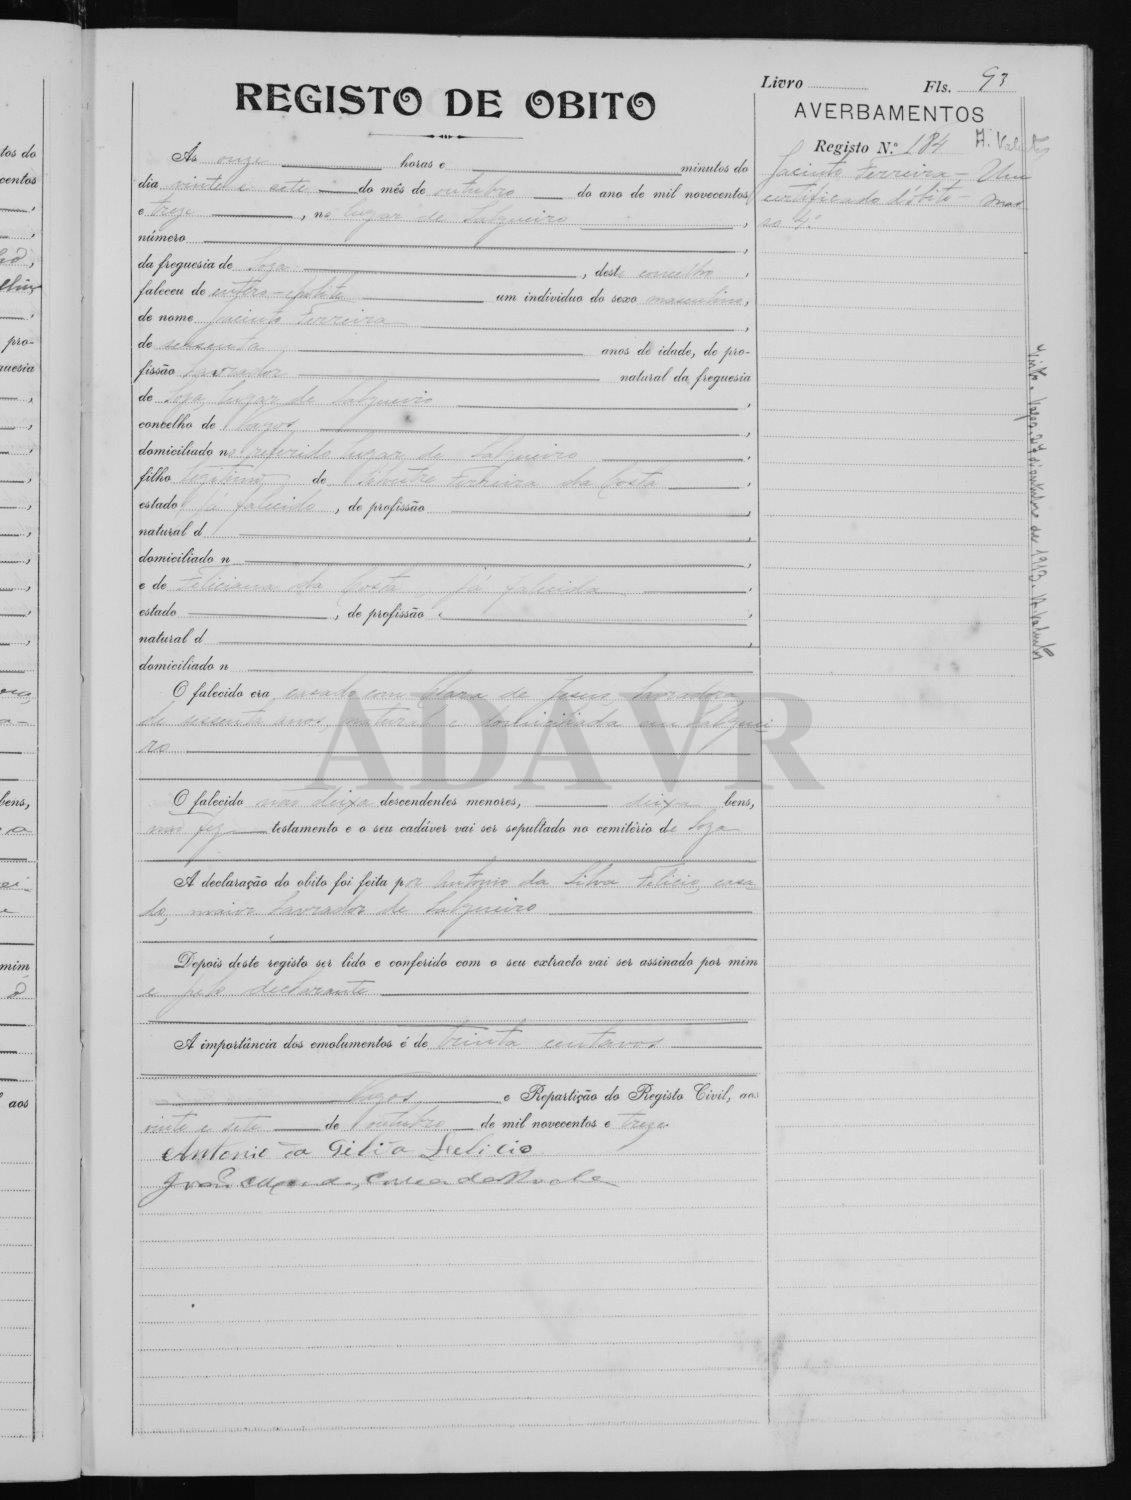 Livro Fls. 93
REGISTO DE OBITO
AVERBAMENTOS
Registo N.º 184 A. Valentes
Jacinto Ferreira — Um
certificado d'óbito — maç
so 4.º
Ás onze horas e minutos do
dia vinte e sete do mês de outubro do ano de mil novecentos
e treze, no lugar de Salgueiro,
número,
da freguesia de Soza, deste concelho,
faleceu de entero-epatite um individuo do sexo masculino,
de nome Jacinto Ferreira,
de sessenta anos de idade, de pro-
fissão lavrador natural da freguesia
de Soza, lugar de Salgueiro,
concelho de Vagos,
domiciliado no referido lugar de Salgueiro,
filho legitimo de Silvestre Ferreira da Costa,
estado já falecido, de profissão,
natural d,
domiciliado n,
e de Feliciana da Costa já falecida,
estado, de profissão,
natural d,
domiciliado n
O falecido era casado com Clara de Jesus, lavradora
de sessenta anos, natural e domiciliada em Salguei
ro
ADAVR
O falecido não deixa descendentes menores, deixa bens,
não fez testamento e o seu cadáver vai ser sepultado no cemitério de Soza
A declaração do obito foi feita por Antonio da Silva Felicio, casa
do, maior lavrador de Salgueiro
Depois deste registo ser lido e conferido com o seu extracto vai ser assinado por mim
e pelo declarante
A importância dos emolumentos é de trinta centavos
Vagos e Repartição do Registo Civil, aos
vinte e sete de outubro de mil novecentos e treze.
Antonio da Silva Felicio
Visto. Vagos, 27 d'outubro de 1913. A. Valentes